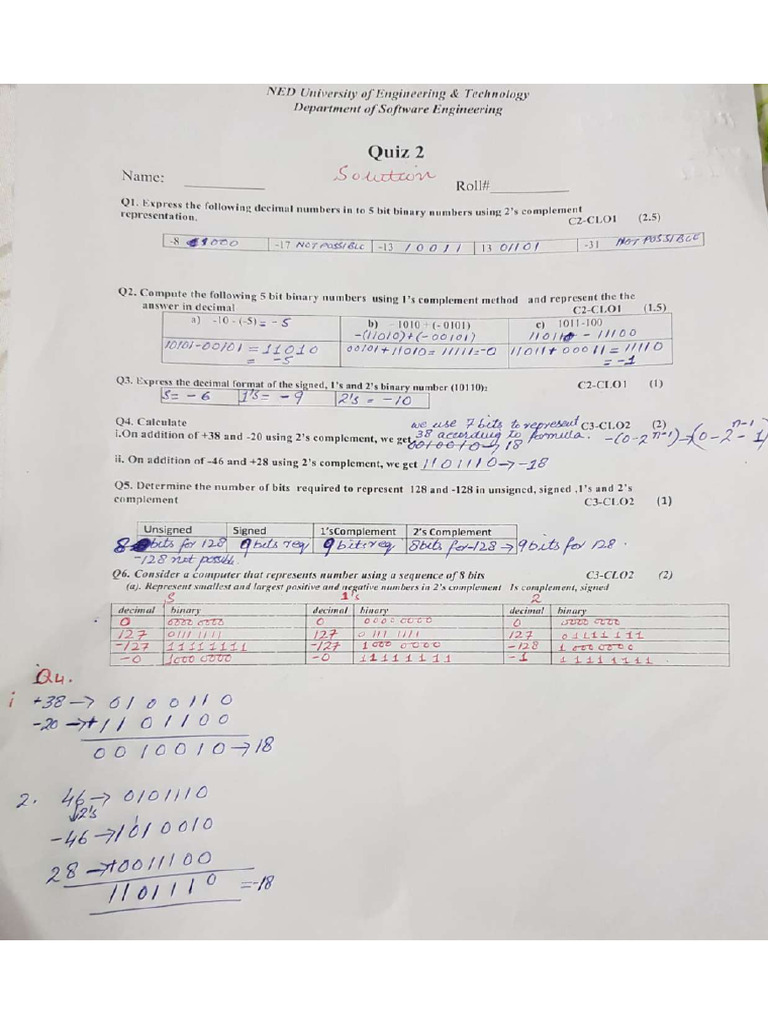 NED University of Engineering & Technology
Department of Software Engineering
Quiz 2
Name: __________ Solution Roll#__________
Q1. Express the following decimal numbers in to 5 bit binary numbers using 2's complement
representation. C2-CLO1 (2.5)
-8 11000 -17 NOT POSSIBLE -13 10011 13 01101 -31 NOT POSSIBLE
Q2. Compute the following 5 bit binary numbers using 1's complement method and represent the the
answer in decimal C2-CLO1 (1.5)
a) -10 - (-5) = -5 b) - 1010 + (- 0101) c) 1011-100
-(11010) + (-00101) 11011 - 11100
10101-00101 = 11010 00101+11010= 11111=-0 11011+00011 = 11110
= -5 = -1
Q3. Express the decimal format of the signed, 1's and 2's binary number (10110)₂ C2-CLO1 (1)
S= -6 1's = -9 2's = -10
Q4. Calculate we use 7 bits to represent C3-CLO2 (2)
38 according to formula. -(0-2ⁿ⁻¹)→(0-2ⁿ⁻¹-1)
i.On addition of +38 and -20 using 2's complement, we get 0010010→18
ii. On addition of –46 and +28 using 2's complement, we get 1101110→-18
Q5. Determine the number of bits required to represent 128 and -128 in unsigned, signed ,1's and 2's
complement C3-CLO2 (1)
Unsigned Signed 1'sComplement 2's Complement
8 bits for 128 9 bits req 9 bits req 8bits for-128 → 9 bits for 128.
-128 not possible.
Q6. Consider a computer that represents number using a sequence of 8 bits C3-CLO2 (2)
(a). Represent smallest and largest positive and negative numbers in 2's complement 1s complement, signed
S 1's 2
decimal binary decimal binary decimal binary
0 0000 0000 0 0000 0000 0 0000 0000
127 0111 1111 127 0111 1111 127 01111111
-127 11111111 -127 1000 0000 -128 1 000 0000
-0 1000 0000 -0 11111111 -1 11111111
Q4.
i +38 → 0100110
-20 → +1101100
0010010 → 18
2. 46 → 0101110
↓2's
-46 → 1010010
28 → +0011100
1101110 = -18